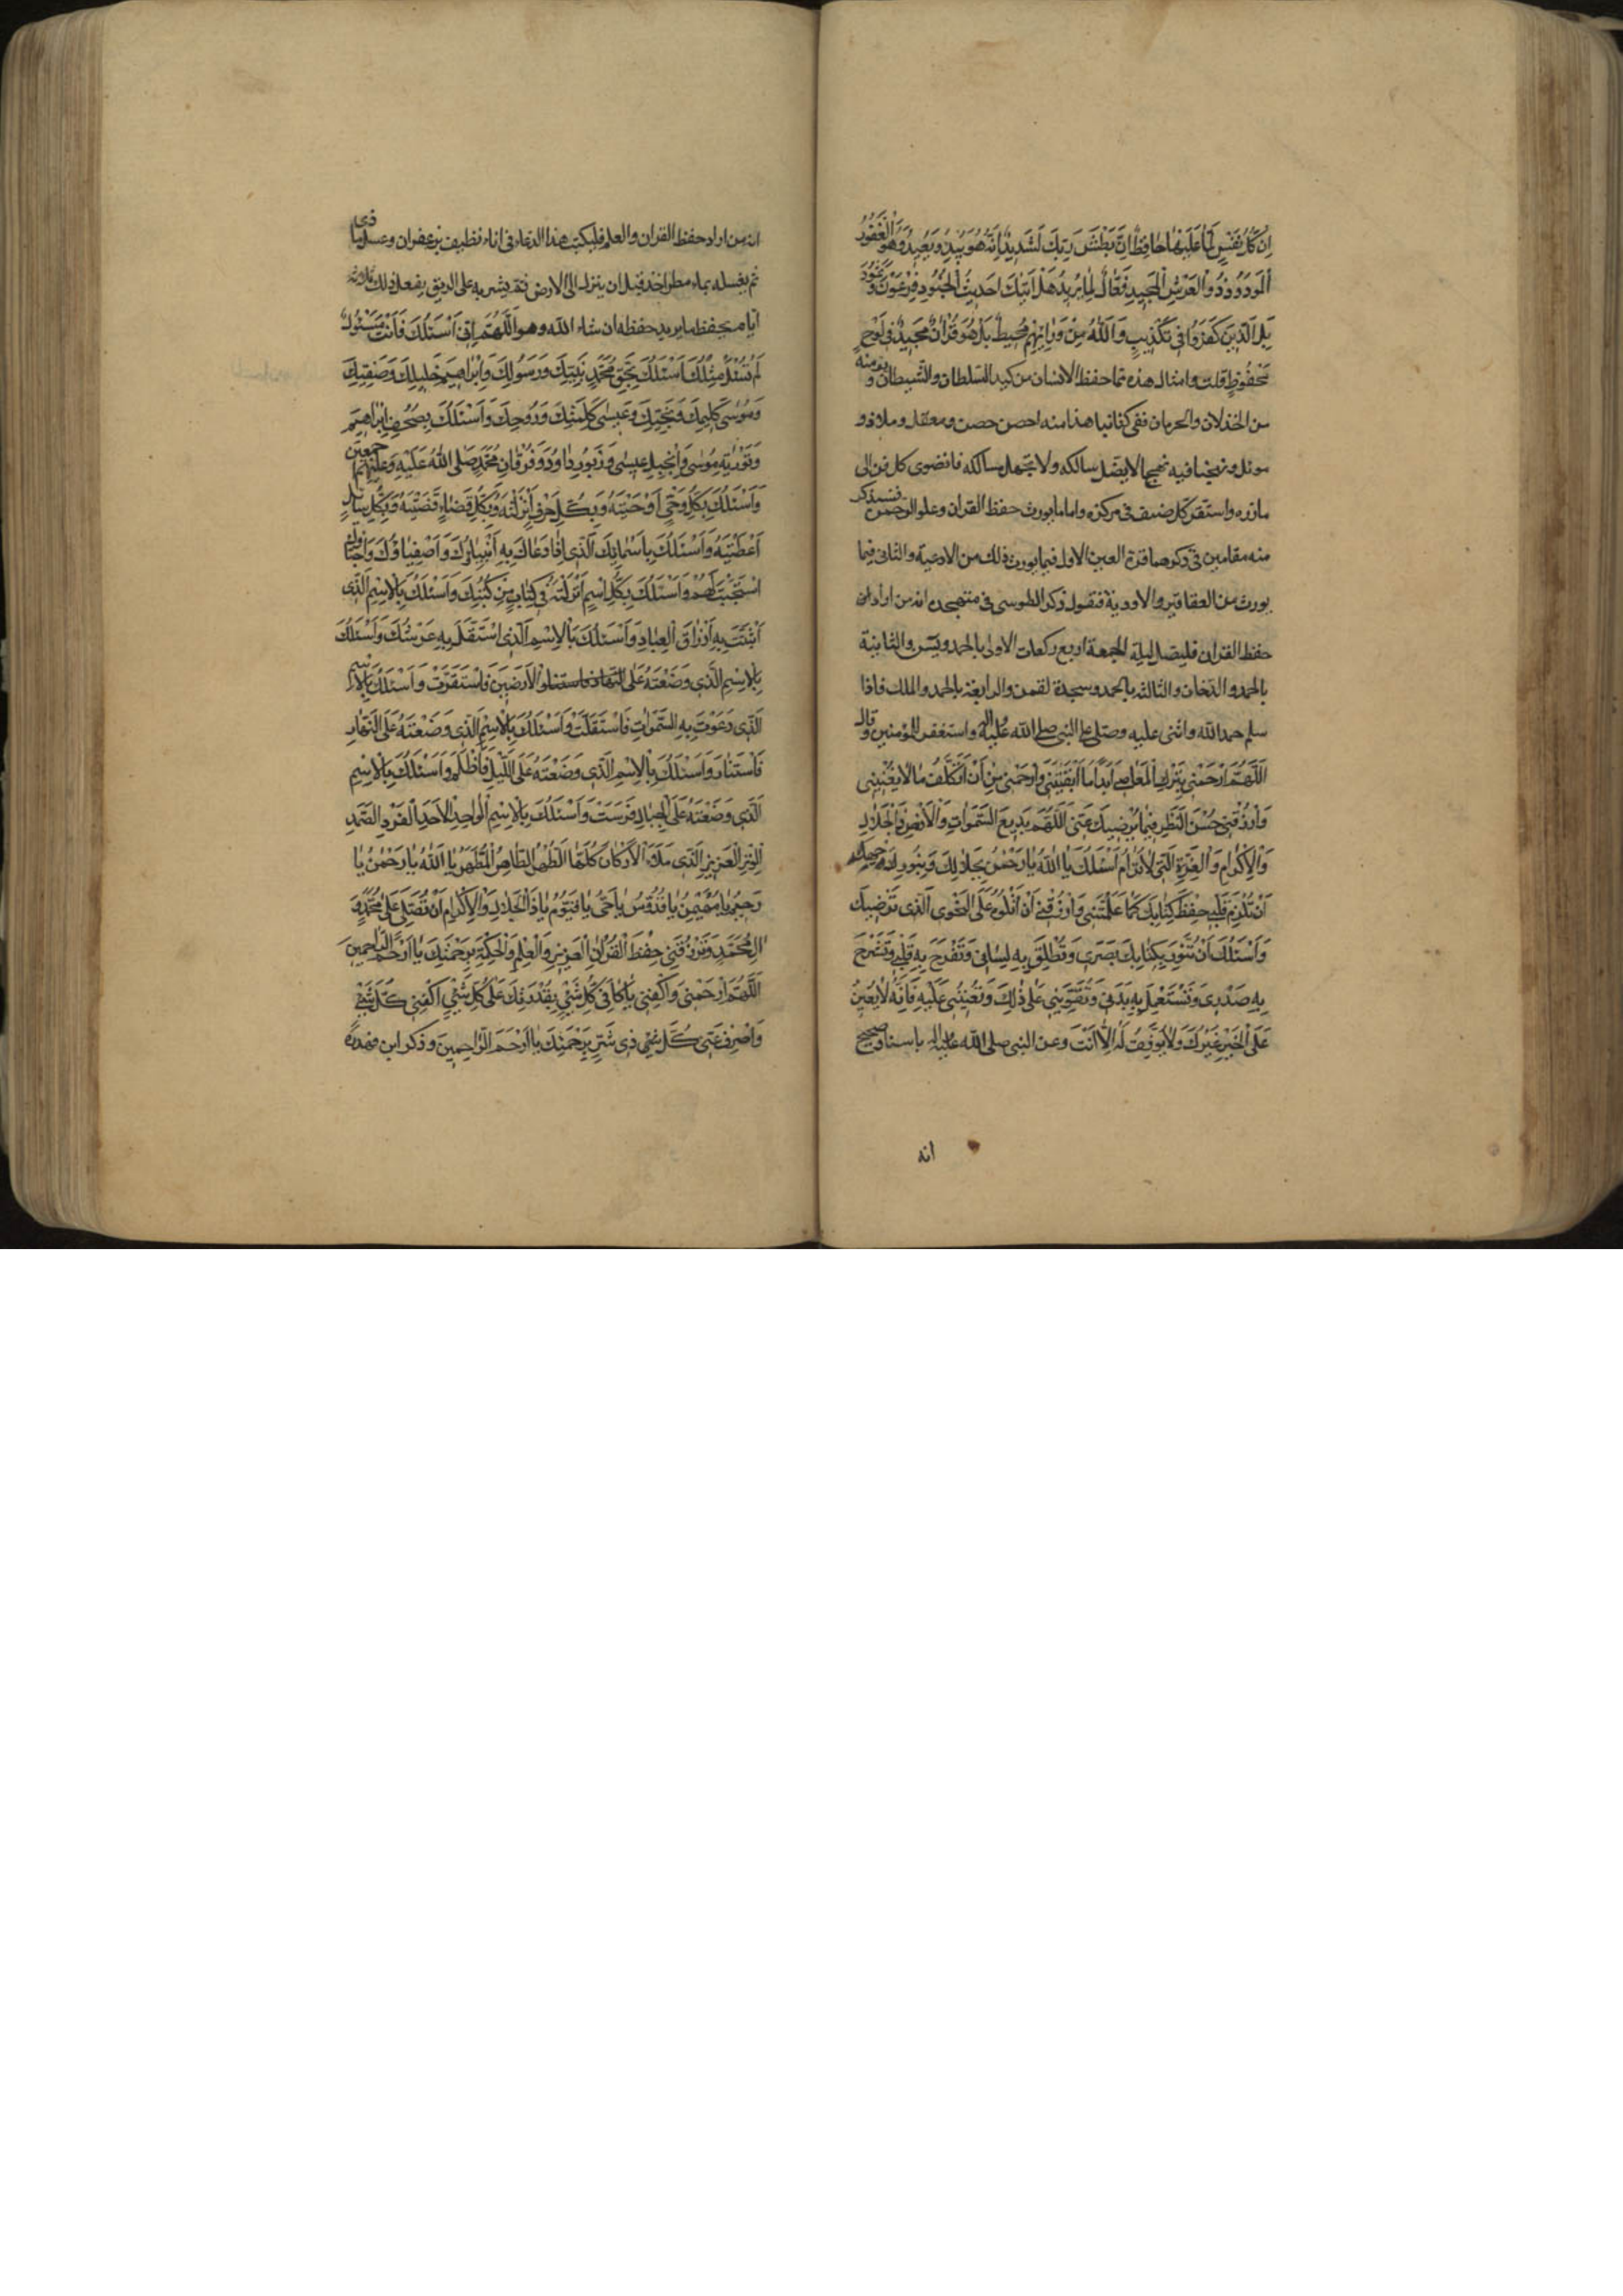 اِنْ كُلُّ نَفْسٍ لَمَّا عَلَيْهَا حَافِظٌ اِنَّ بَطْشَ رَبِّكَ لَشَدِيدٌ اِنَّهُ هُوَ يُبْدِئُ وَيُعِيدُ وَهُوَ الْغَفُورُ
الْوَدُودُ ذُو الْعَرْشِ الْمَجِيدِ فَعَّالٌ لِمَا يُرِيدُ هَلْ اَتٰيكَ حَدِيثُ الْجُنُودِ فِرْعَوْنَ وَثَمُودَ
بَلِ الَّذِينَ كَفَرُوا فِى تَكْذِيبٍ وَاللّٰهُ مِنْ وَرَائِهِمْ مُحِيطٌ بَلْ هُوَ قُرْآنٌ مَجِيدٌ فِى لَوْحٍ
مَحْفُوظٍ قلت وامثال هذه مما حفظ الانسان من كيد السلطان والشيطان و
من الخذلان والحرمان ففى كفانيا هذا منه احصن حصن ومعقل وملاذ و
موئل ونهجنا فيه نهجا لا يضل سالكه ولا تجهل مسالكه فانضوى كل فن الى
مازره واستقر كل ضيف فى مركزه واما ما يورث حفظ القران وعلو الرحمن فسنذكر
منه مقامين فى ذكرهما قرة العين الاول فيما يورث ذلك من الادعية والثانى فيما
يورث من العقاقير والادوية فنقول ذكر الطوسى فى متهجده انه من اراد ان
حفظ القران فليصل ليلة الجمعة اربع ركعات الاولى بالحمد ويس والثانية
بالحمد والدخان والثالثة بالحمد وسجدة لقمن والرابعة بالحمد والملك فاذا
سلم حمد الله واثنى عليه وصلى على النبى صلى الله عليه وآله واستغفر للمؤمنين وقال
اَللّٰهُمَّ ارْحَمْنِى بِتَرْكِ الْمَعَاصِى اَبَدًا مَا اَبْقَيْتَنِى وَارْحَمْنِى مِنْ اَنْ اَتَكَلَّفَ مَا لَا يَعْنِينِى
وَارْزُقْنِى حُسْنَ النَّظَرِ فِيمَا يُرْضِيكَ عَنِّى اَللّٰهُمَّ بَدِيعَ السَّمٰوَاتِ وَالْاَرْضِ ذَا الْجَلَالِ
وَالْاِكْرَامِ وَالْعِزَّةِ الَّتِى لَا تُرَامُ اَسْئَلُكَ يَا اَللّٰهُ يَا رَحْمٰنُ بِجَلَالِكَ وَبِنُورِ وَجْهِكَ
اَنْ تُلْزِمَ قَلْبِى حِفْظَ كِتَابِكَ كَمَا عَلَّمْتَنِى وَارْزُقْنِى اَنْ اَتْلُوَهُ عَلَى النَّحْوِ الَّذِى تَرْضِيكَ
وَاَسْئَلُكَ اَنْ تُنَوِّرَ بِكِتَابِكَ بَصَرِى وَتُطْلِقَ بِهِ لِسَانِى وَتُفَرِّحَ بِهِ قَلْبِى وَتَشْرَحَ
بِهِ صَدْرِى وَتَسْتَعْمِلَ بِهِ بَدَنِى وَتُقَوِّيَنِى عَلٰى ذٰلِكَ وَتُعِينَنِى عَلَيْهِ فَاِنَّهُ لَا يُعِينُ
عَلَى الْخَيْرِ غَيْرُكَ وَلَا يُوَفِّقُ لَهُ اِلَّا اَنْتَ وعن النبى صلى الله عليه وآله باسناد صحيح
انه
انه من اراد حفظ القران والعلم فليكتب هذا الدعاء فى اناء نظيف بزعفران وعسل ماذى
ثم يغسله بماء مطر اخذ قبل ان ينزل الى الارض ثم يشربه على الريق يفعل ذلك ثلاثة
ايام يحفظ ما يريد حفظه ان شاء الله وهو اَللّٰهُمَّ اِنِّى اَسْئَلُكَ فَاَنْتَ مَسْئُولٌ
لَمْ تُسْئَلْ مِثْلُكَ اَسْئَلُكَ بِحَقِّ مُحَمَّدٍ نَبِيِّكَ وَرَسُولِكَ وَاِبْرَاهِيمَ خَلِيلِكَ وَصَفِيِّكَ
وَمُوسٰى كَلِيمِكَ وَنَجِيِّكَ وَعِيسٰى كَلِمَتِكَ وَرُوحِكَ وَاَسْئَلُكَ بِصُحُفِ اِبْرَاهِيمَ
وَتَوْرٰيةِ مُوسٰى وَاِنْجِيلِ عِيسٰى وَزَبُورِ دَاوُدَ وَفُرْقَانِ مُحَمَّدٍ صَلَّى اللّٰهُ عَلَيْهِ وَعَلَيْهِمْ اَجْمَعِينَ
وَاَسْئَلُكَ بِكُلِّ وَحْىٍ اَوْحَيْتَهُ وَبِكُلِّ حَرْفٍ اَنْزَلْتَهُ وَبِكُلِّ قَضَاءٍ قَضَيْتَهُ وَبِكُلِّ سَائِلٍ
اَعْطَيْتَهُ وَاَسْئَلُكَ بِاَسْمَائِكَ الَّذِى اِذَا دَعَاكَ بِهِ اَنْبِيَاؤُكَ وَاَصْفِيَاؤُكَ وَاَحِبَّاؤُكَ
اسْتَجَبْتَ لَهُمْ وَاَسْئَلُكَ بِكُلِّ اسْمٍ اَنْزَلْتَهُ فِى كِتَابٍ مِنْ كُتُبِكَ وَاَسْئَلُكَ بِالْاِسْمِ الَّذِى
اَثْبَتَّ بِهِ اَرْزَاقَ الْعِبَادِ وَاَسْئَلُكَ بِالْاِسْمِ الَّذِى اسْتَقَلَّ بِهِ عَرْشُكَ وَاَسْئَلُكَ
بِالْاِسْمِ الَّذِى وَضَعْتَهُ عَلَى النهار فاستنار الْاَرَضِينَ فَاسْتَقَرَّتْ وَاَسْئَلُكَ بِالْاِسْمِ
الَّذِى دَعَوْتَ بِهِ السَّمٰوَاتِ فَاسْتَقَلَّتْ وَاَسْئَلُكَ بِالْاِسْمِ الَّذِى وَضَعْتَهُ عَلَى النَّهَارِ
فَاسْتَنَارَ وَاَسْئَلُكَ بِالْاِسْمِ الَّذِى وَضَعْتَهُ عَلَى اللَّيْلِ فَاَظْلَمَ وَاَسْئَلُكَ بِالْاِسْمِ
الَّذِى وَضَعْتَهُ عَلَى الْجِبَالِ فَرَسَتْ وَاَسْئَلُكَ بِالْاِسْمِ الْوَاحِدِ الْاَحَدِ الْفَرْدِ الصَّمَدِ
الْوِتْرِ الْعَزِيزِ الَّذِى مَلَاَ الْاَرْكَانَ كُلَّهَا الطُّهْرِ الطَّاهِرِ الْمُطَهَّرِ يَا اَللّٰهُ يَا رَحْمٰنُ يَا
رَحِيمُ يَا مُهَيْمِنُ يَا قُدُّوسُ يَا حَىُّ يَا قَيُّومُ يَا ذَا الْجَلَالِ وَالْاِكْرَامِ اَنْ تُصَلِّىَ عَلٰى مُحَمَّدٍ وَ
اٰلِ مُحَمَّدٍ وَتَرْزُقَنِى حِفْظَ الْقُرْاٰنِ الْعَزِيزِ وَالْعِلْمِ وَالْحِكْمَةِ بِرَحْمَتِكَ يَا اَرْحَمَ الرَّاحِمِينَ
اَللّٰهُمَّ ارْحَمْنِى وَاكْفِنِى يَا كَافِىَ كُلِّ شَىْءٍ بِقُدْرَتِكَ عَلٰى كُلِّ شَىْءٍ اكْفِنِى كُلَّ شَىْءٍ
وَاصْرِفْ عَنِّى كُلَّ ذِى شَرٍّ بِرَحْمَتِكَ يَا اَرْحَمَ الرَّاحِمِينَ وذكر ابن فهد ره